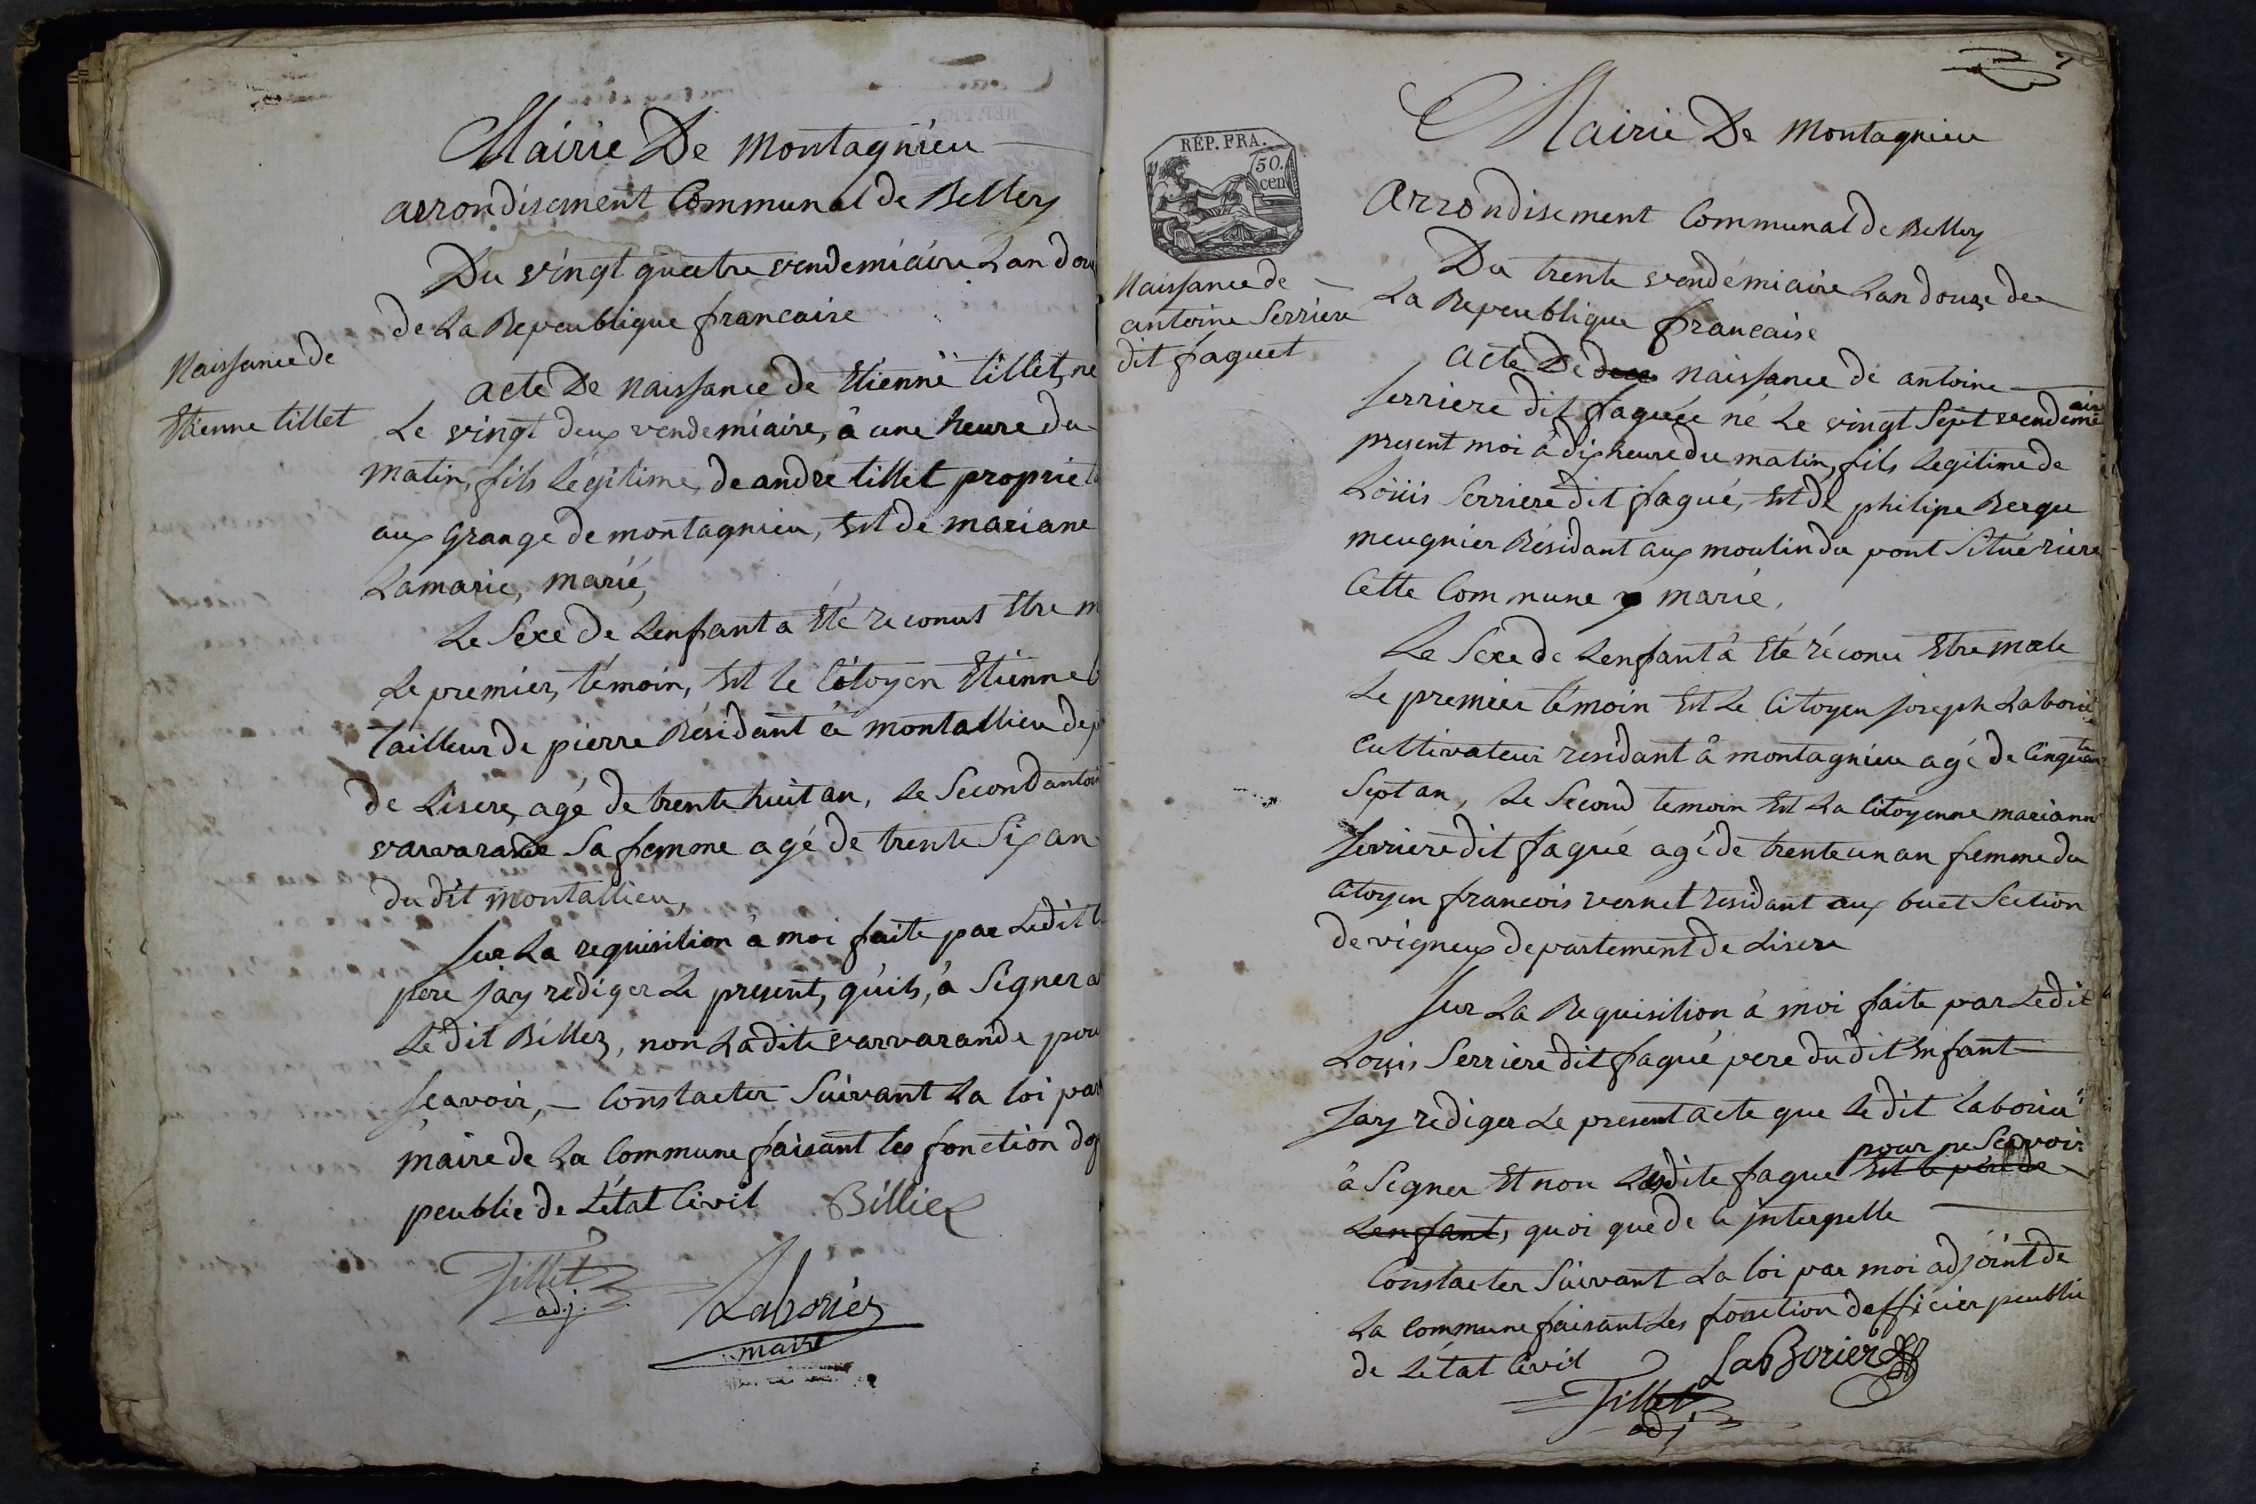 Mairie De Montagnieu
arrondisement Communal de Belley
Du vingt quatre vendemiaire Lan dou
de La Repeublique francaise
Naissance de
Etienne tillet
acte De naissance de Etienne tillet, ne
Le vingt deux vendemiaire, à une heure du
matin, fils Légitime, de andré tillet propriet
aux grange de montagnieu, Est de mariane
Lamarie, marié,
Le Sexe de Lenfant a Eté reconut Etre m
Le premier, témoin, Est le Citoyen Etienne
tailleur de pierre Résidant à montallieu dep
de Lisere, agé de trente huit an, Le Second antoi
varvarande Sa femme agé de trente Six an
du dit montallieu,
Sur La requisition à moi faite par Ledit
pere jay rediger Le present, quils, à Signer a
Ledit Billez, non Ladite varvarande pou
Scavoir, – Constacter Suivant La loi par
maire de La Commune faisant les fonction dof
peublic de Létat Civil Billiez
Tillet
adj.
Laborier
maire
7
RÉP. FRA.
50.
cen
Mairie De Montagnieu
Arrondisement Communal de Belley
Du trente vendémiaire Lan douze de
La Repeublique francaise
Naissance de
antoine Serriere
dit faquet
Acte De naissance de antoine
Serriere dit faquée né Le vingt Sept vendemiaire
present moi à dix heure du matin, fils Legitime de
Loüis Serriere dit faqué, Est de philipe Berge
meugnier Résidant aux moulin du pont Situé riere
Cette Commune marié,
Le Sexe de Lenfant à Eté réconu Etre male
Le premier témoin Est Le Citoyen joseph Laborié
Cultivateur residant à montagnieu agé de Cinquante
Sept an, Le Second temoin Est La Citoyenne mariann
Serriere dit faqué agé de trente un an femme du
Citoyen francois vernet residant aux buet Section
de vigneux departement de Lisere
Sur La Requisition à moi faite par Ledit
Louis Serriere dit faqué pere dudit Enfant
Jay rediger Le present acte que Ledit Laborié
pour ne Scavoir
à Signer Et non Ladite faque Est le pere de
Lenfant, quoi que de ce jnterpelle
Constacter Suivant La loi par moi adjoint de
La Commune faisant Les fonction dofficier peublic
de Létat Civil LaBorier
Tillet
adj